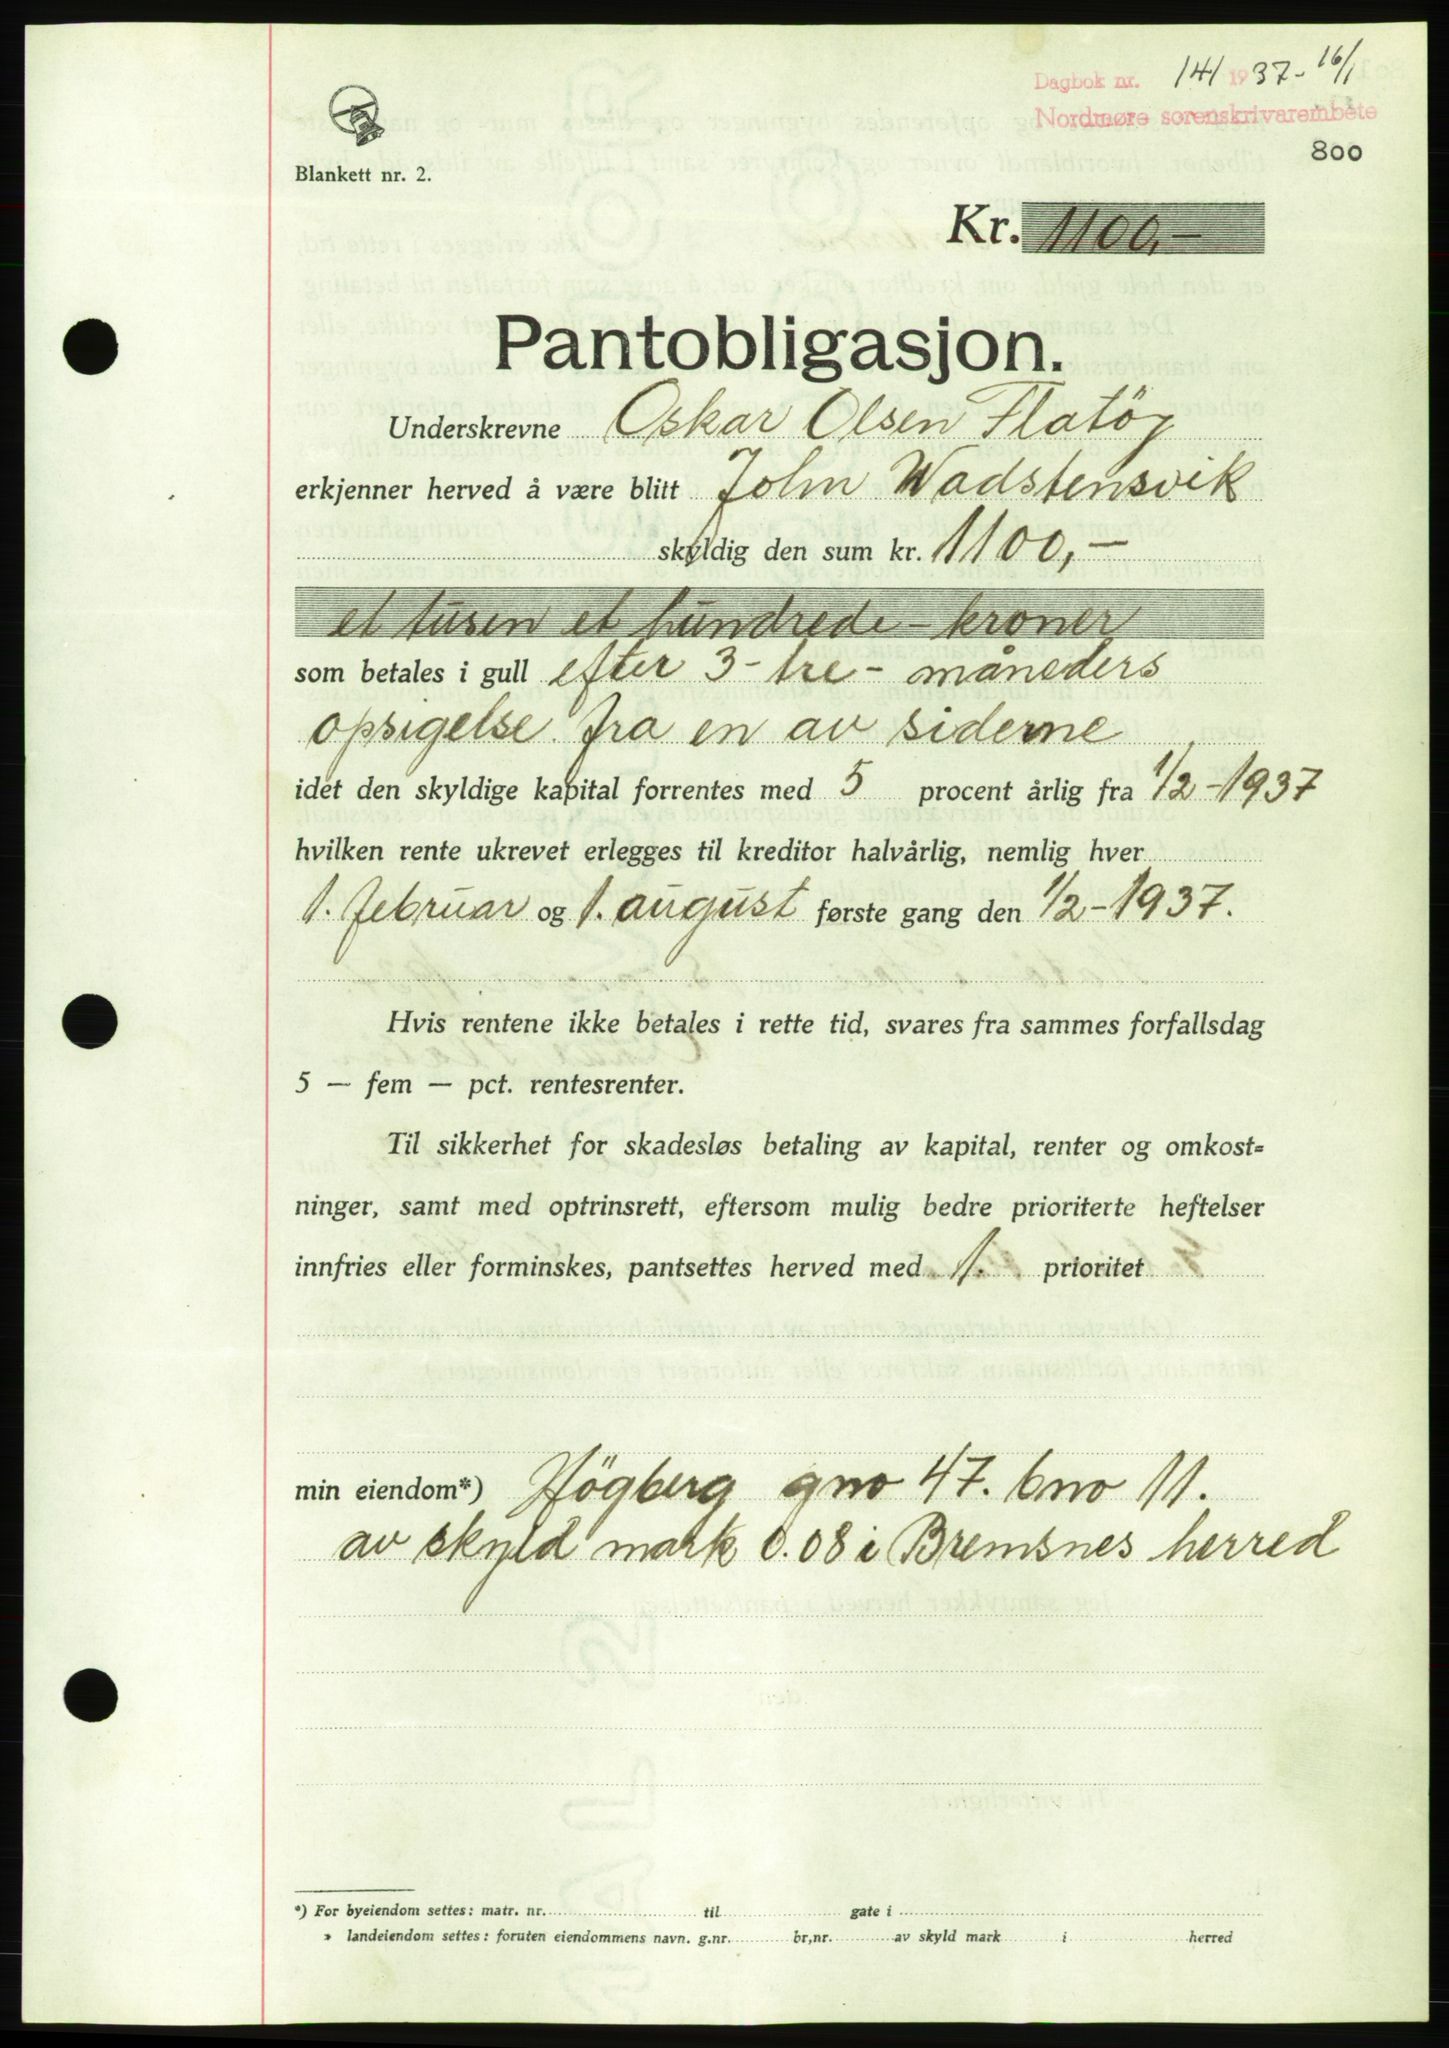 Dagbok nr. 141 1937 - 16/1
Nordmøre sorenskrivarembete
800
Blankett nr. 2.
Kr. 1100,-
Pantobligasjon.
Underskrevne Oskar Olsen Flatöy
erkjenner herved å være blitt John Wadstensvik
skyldig den sum kr. 1100,-
et tusen et hundrede - kroner
som betales i gull efter 3 - tre - måneders
opsigelse fra en av siderne
idet den skyldige kapital forrentes med 5 procent årlig fra 1/2 - 1937
hvilken rente ukrevet erlegges til kreditor halvårlig, nemlig hver
1. februar og 1. august første gang den 1/2 - 1937.
Hvis rentene ikke betales i rette tid, svares fra sammes forfallsdag
5 — fem — pct. rentesrenter.
Til sikkerhet for skadesløs betaling av kapital, renter og omkost-
ninger, samt med optrinsrett, eftersom mulig bedre prioriterte heftelser
innfries eller forminskes, pantsettes herved med 1. prioritet
min eiendom*) Högberg gno 47. bno 11.
av skyld mark 0.08 i Bremsnes herred
*) For byeiendom settes: matr. nr. til gate i
» landeiendom settes: foruten eiendommens navn. g.nr. br,nr. av skyld mark i herred